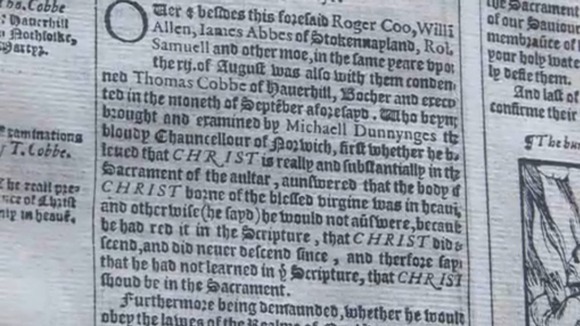 Tho. Cobbe
of Hauerhill
in Northfolke,
Martyr.
Examinations
of T. Cobbe.
The reall pre-
sence of Christ
only in heauē.
OUer & besides this foresaid Roger Coo, Willi
Allen, Iames Abbes of Stokennapland, Rob.
Samuell and other moe, in the same yeare vpon
the rij. of August was also with them condem
ned Thomas Cobbe of Hauerhill, Bocher and execu
ted in the moneth of Septēber aforesayd. Who beyng
brought and examined by Michaell Dunnynges the
bloudy Chauncellour of Norwich, first whether he be
leued that CHRIST is really and substantially in the
Sacrament of the aultar, aunswered that the body of
CHRIST borne of the blessed virgine was in heauē,
and otherwise (he sayd) he would not aūswere, because
he had red it in the Scripture, that CHRIST did a
scend, and did neuer descend since, and therfore sayd
that he had not learned in ẙ Scripture, that CHRIST
shoud be in the Sacrament.
Furthermore being demaunded, whether he would
obey the lawes of the Realme of
the Sacrament
of our Sauiour
membraūce of
your holy wate
ly defie them.
And last of
confirme their
¶The bu